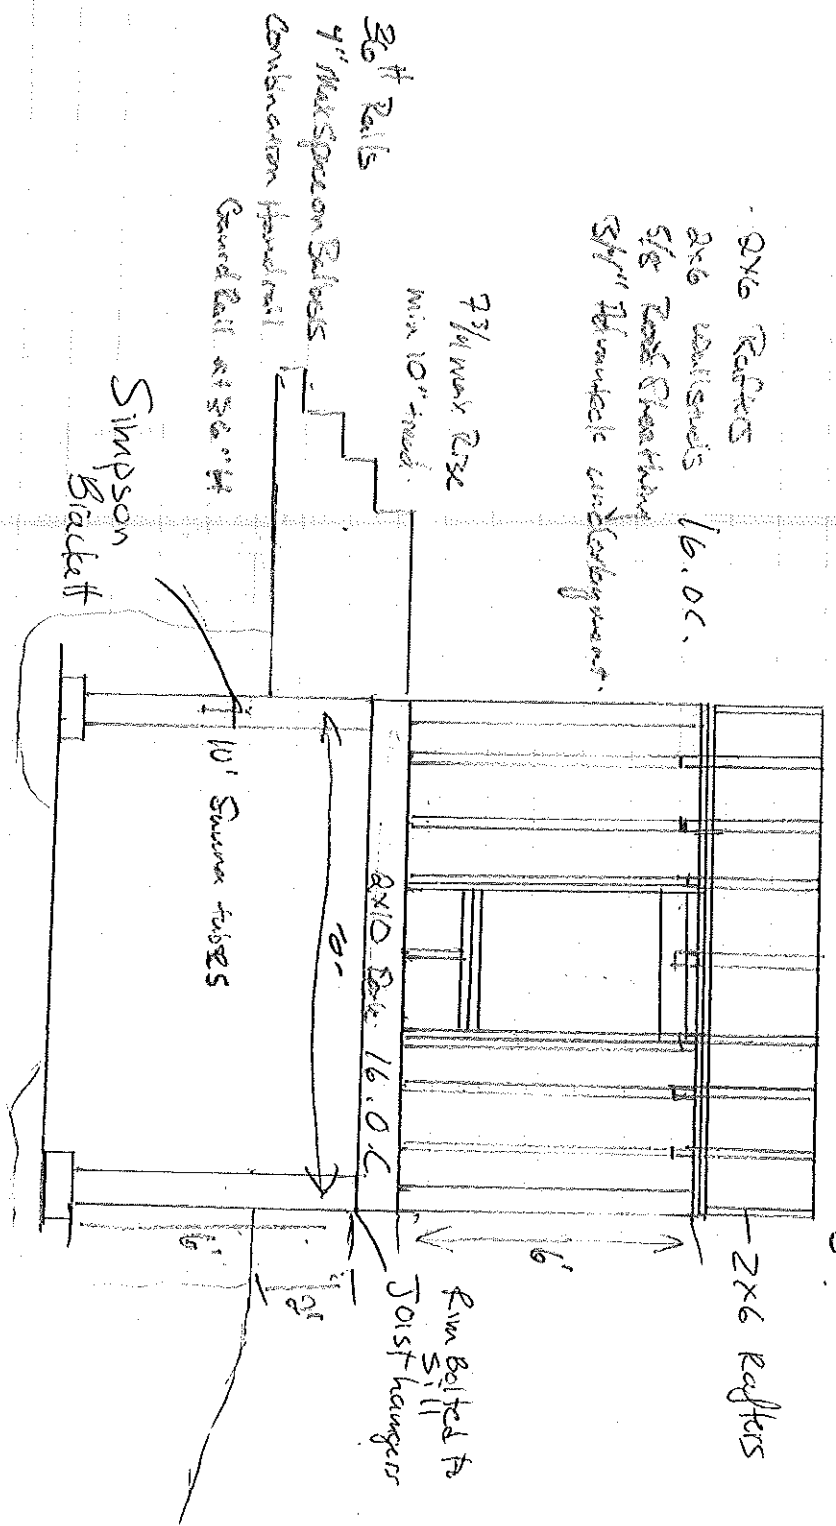 2x6 Rafters
2x6 wall studs 16. O.C.
5/8 Roof Sheathing
3/4" Advantech underlayment.
7 3/4 max Rise
min 10" tread.
36" H Rails
4" Max Space on Balusts
Combination Handrail
Guard Rail at 36" H
Simpson
Brackett
10' Sauna tubes
2x10 16. O.C
2x6 Rafters
6'
Rim Bolted to
Sill
Joist hangers
2'
6'